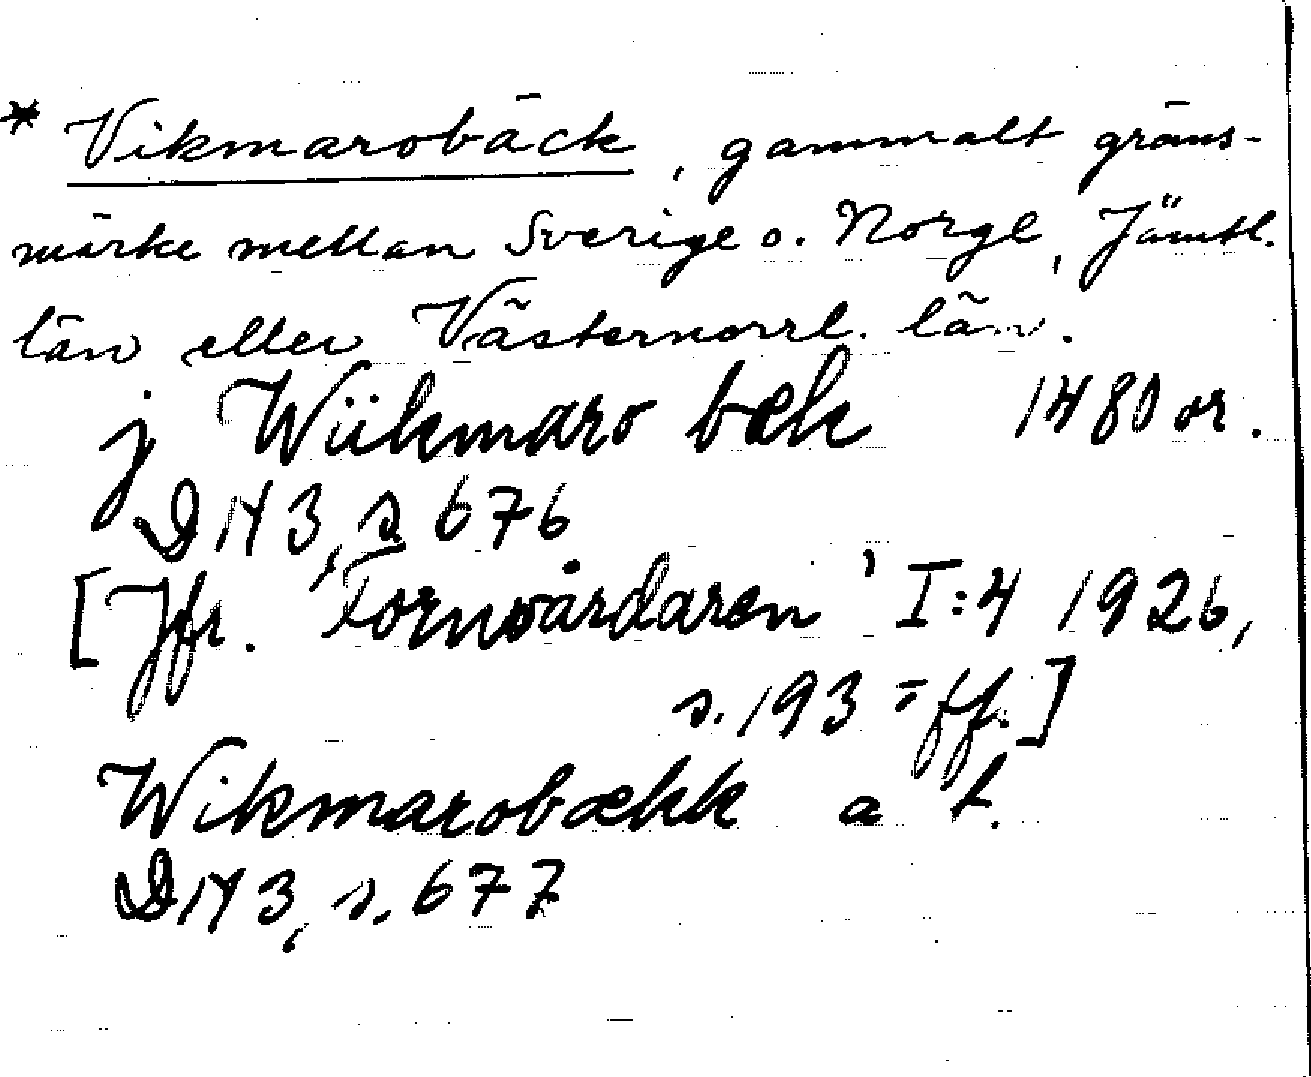 * Vikmarobäck, gammalt gräns-
märke mellan Sverige o. Norge, Jämtl.
län eller Västernorrl. län.
j Wiikmaro bæk 1480 or.
DN 3, s. 676
[Jfr. 'Fornvårdaren' I:4 1926,
s. 193 ff.]
Wikmarobækk a t.
DN 3, s. 677